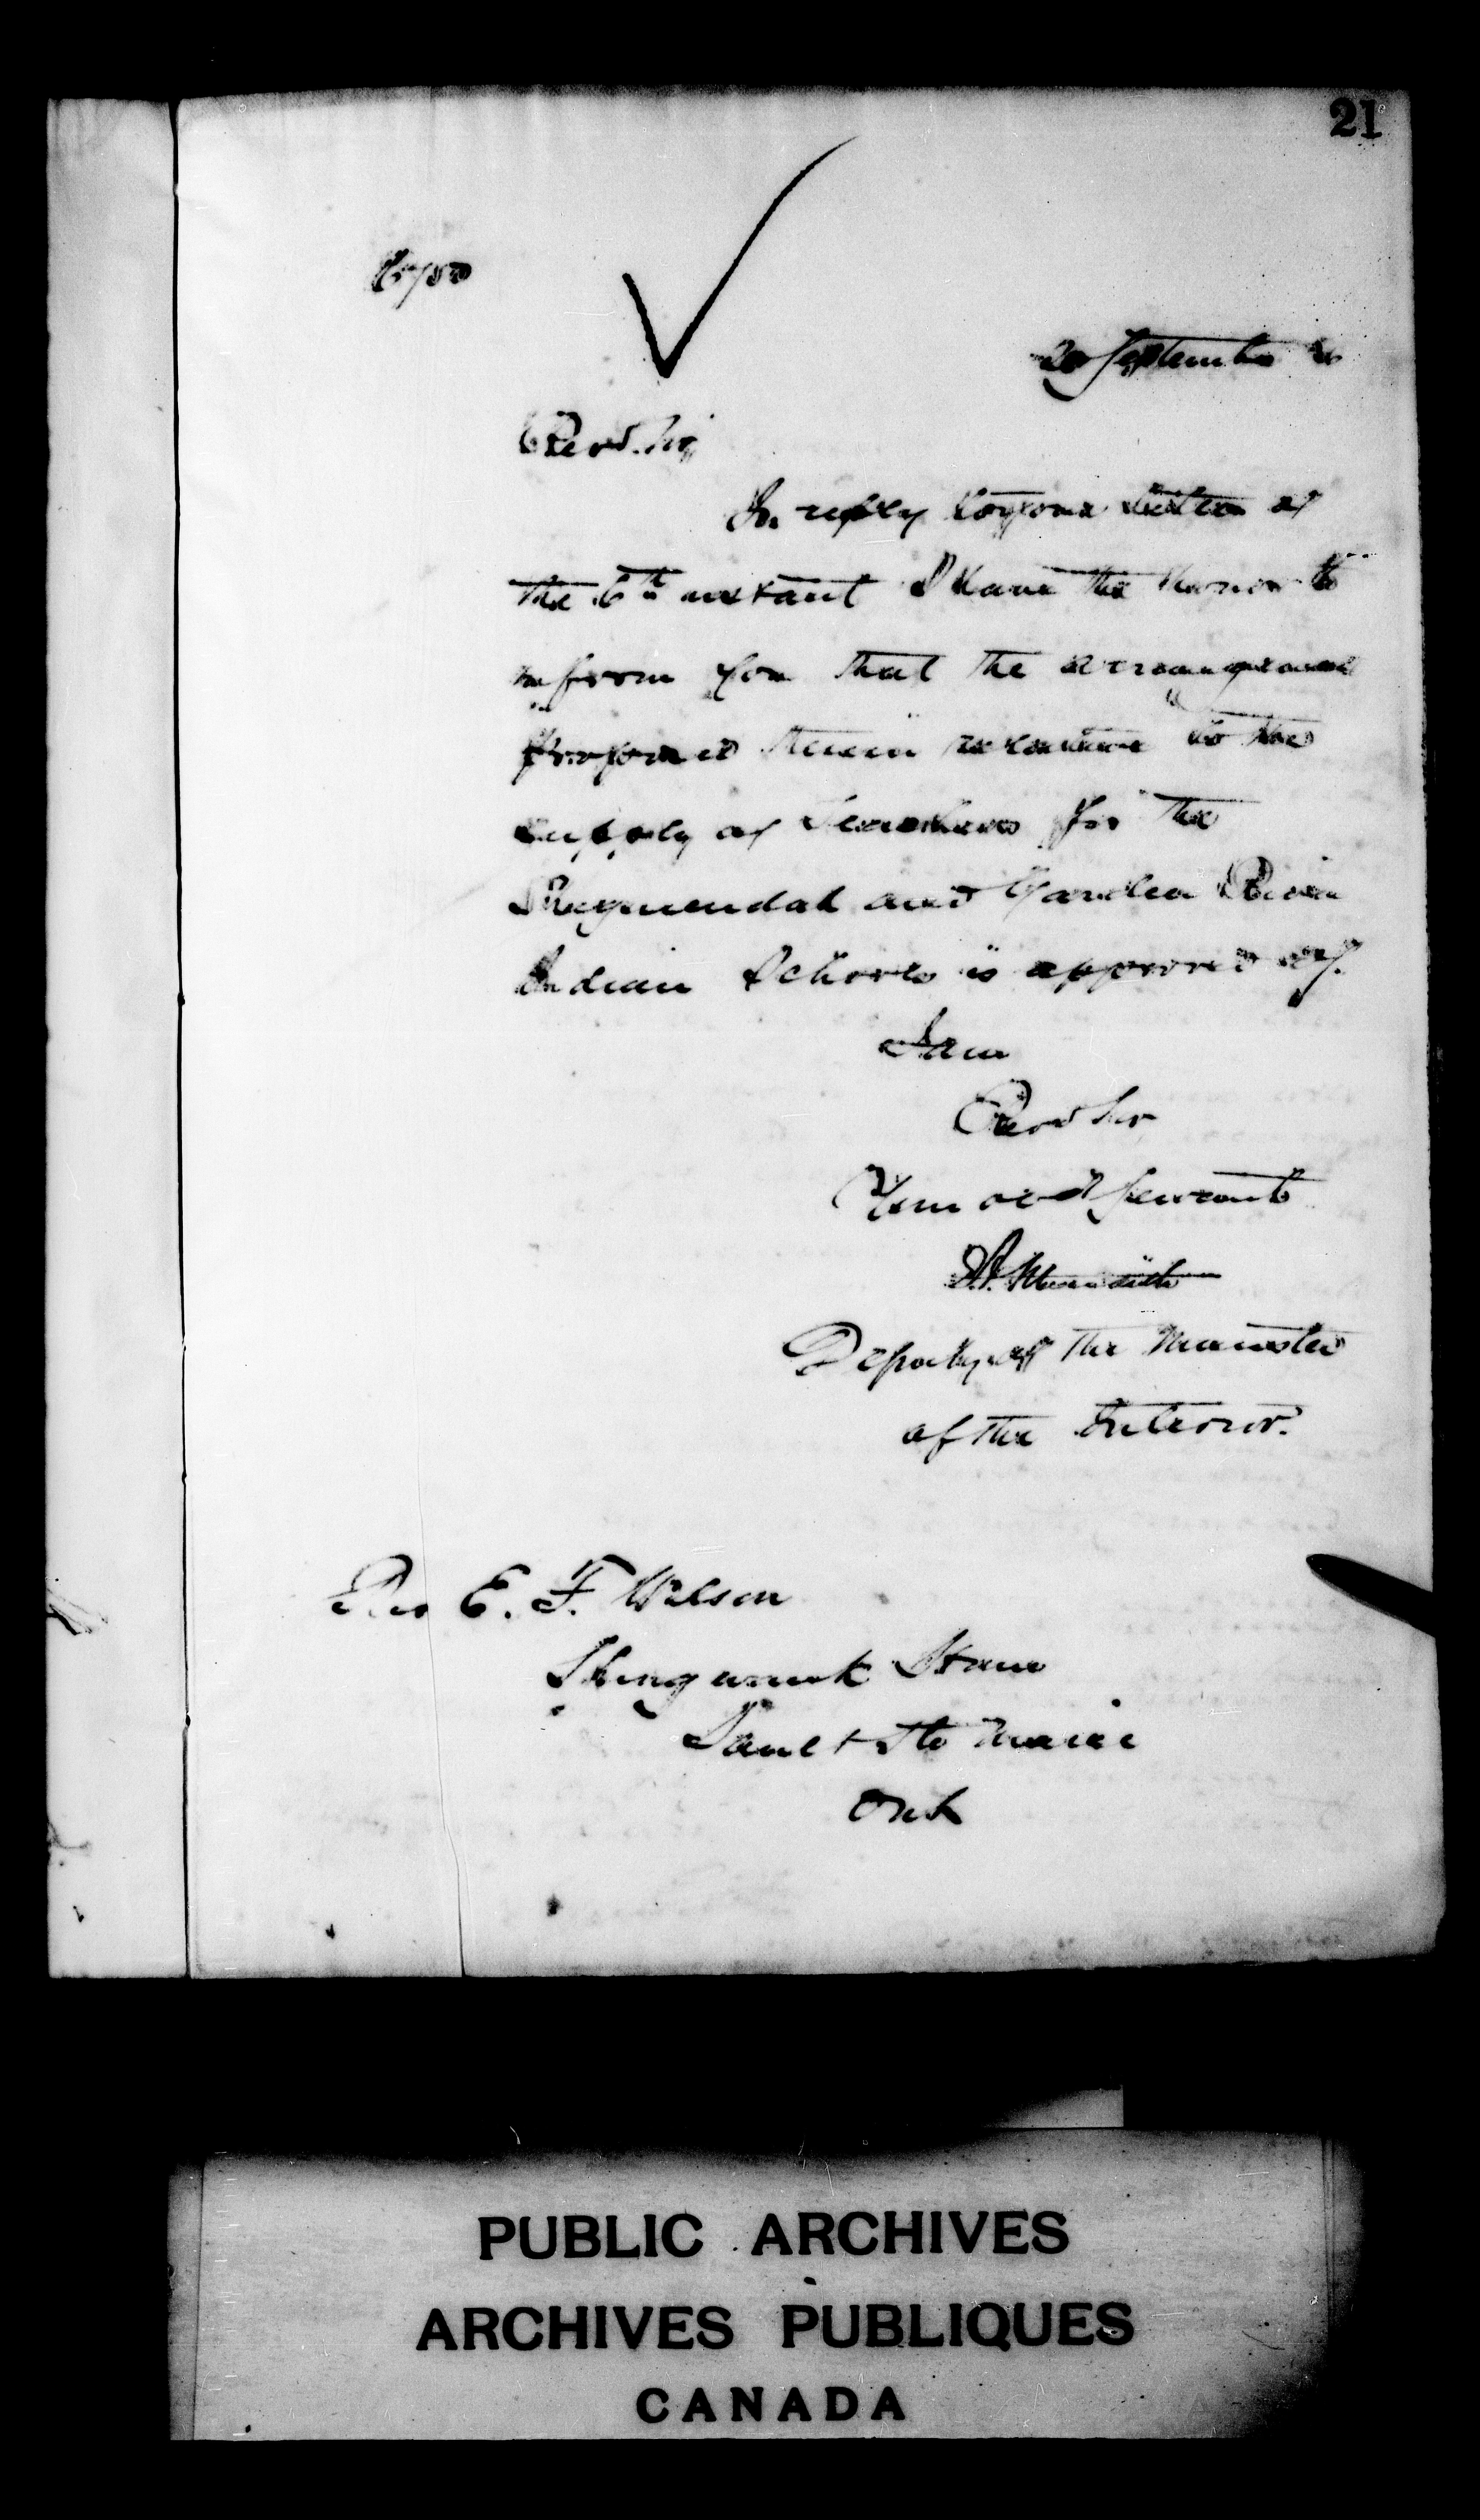 21
20 September
Revd. Sir
In reply to your letter of
the 6th instant I have the honor to
inform you that the arrangement
proposed therein relative to the
supply of Teachers for the
and Garden River
Indian Schools is approved of.
I am
Revd Sir
Your obdt Servant
Deputy of the Minister
of the Interior.
Rev E. F. Wilson
Shingwauk Home
Sault Ste Marie
Ont
PUBLIC ARCHIVES
ARCHIVES PUBLIQUES
CANADA